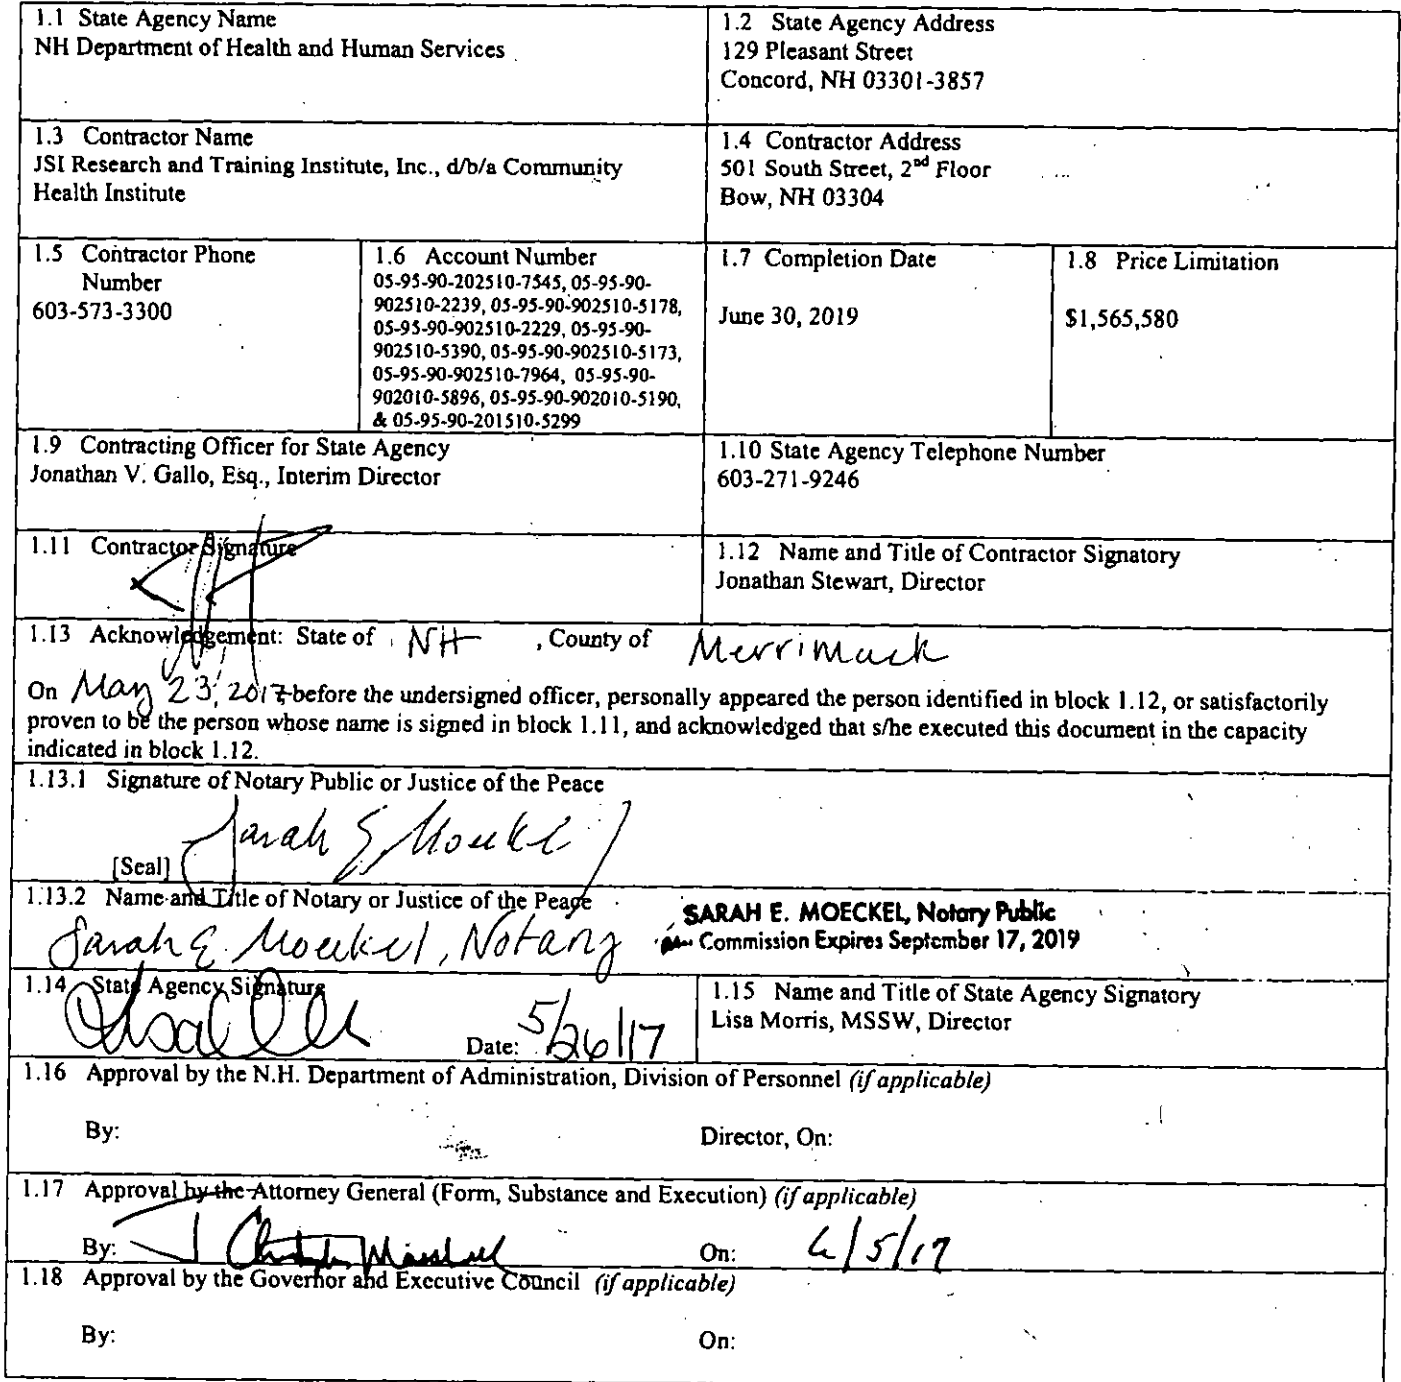 1.1 State Agency Name
NH Department of Health and Human Services
1.2 State Agency Address
129 Pleasant Street
Concord, NH 03301-3857
1.3 Contractor Name
JSI Research and Training Institute, Inc., d/b/a Community
Health Institute
1.4 Contractor Address
501 South Street, 2nd Floor
Bow, NH 03304
1.5 Contractor Phone
Number
603-573-3300
1.6 Account Number
05-95-90-202510-7545, 05-95-90-
902510-2239, 05-95-90-902510-5178,
05-95-90-902510-2229, 05-95-90-
902510-5390, 05-95-90-902510-5173,
05-95-90-902510-7964, 05-95-90-
902010-5896, 05-95-90-902010-5190,
& 05-95-90-201510-5299
1.7 Completion Date
June 30, 2019
1.8 Price Limitation
$1,565,580
1.9 Contracting Officer for State Agency
Jonathan V. Gallo, Esq., Interim Director
1.10 State Agency Telephone Number
603-271-9246
1.11 Contractor Signature
1.12 Name and Title of Contractor Signatory
Jonathan Stewart, Director
1.13 Acknowledgement: State of NH , County of Merrimack
On May 23, 2017 before the undersigned officer, personally appeared the person identified in block 1.12, or satisfactorily
proven to be the person whose name is signed in block 1.11, and acknowledged that s/he executed this document in the capacity
indicated in block 1.12.
1.13.1 Signature of Notary Public or Justice of the Peace
Sarah E Moeckel
[Seal]
1.13.2 Name and Title of Notary or Justice of the Peace
Sarah E. Moeckel, Notary
SARAH E. MOECKEL, Notary Public
Commission Expires September 17, 2019
1.14 State Agency Signature
Date: 5/26/17
1.15 Name and Title of State Agency Signatory
Lisa Morris, MSSW, Director
1.16 Approval by the N.H. Department of Administration, Division of Personnel (if applicable)
By:
Director, On:
1.17 Approval by the Attorney General (Form, Substance and Execution) (if applicable)
By:
On: 6/5/17
1.18 Approval by the Governor and Executive Council (if applicable)
By:
On: